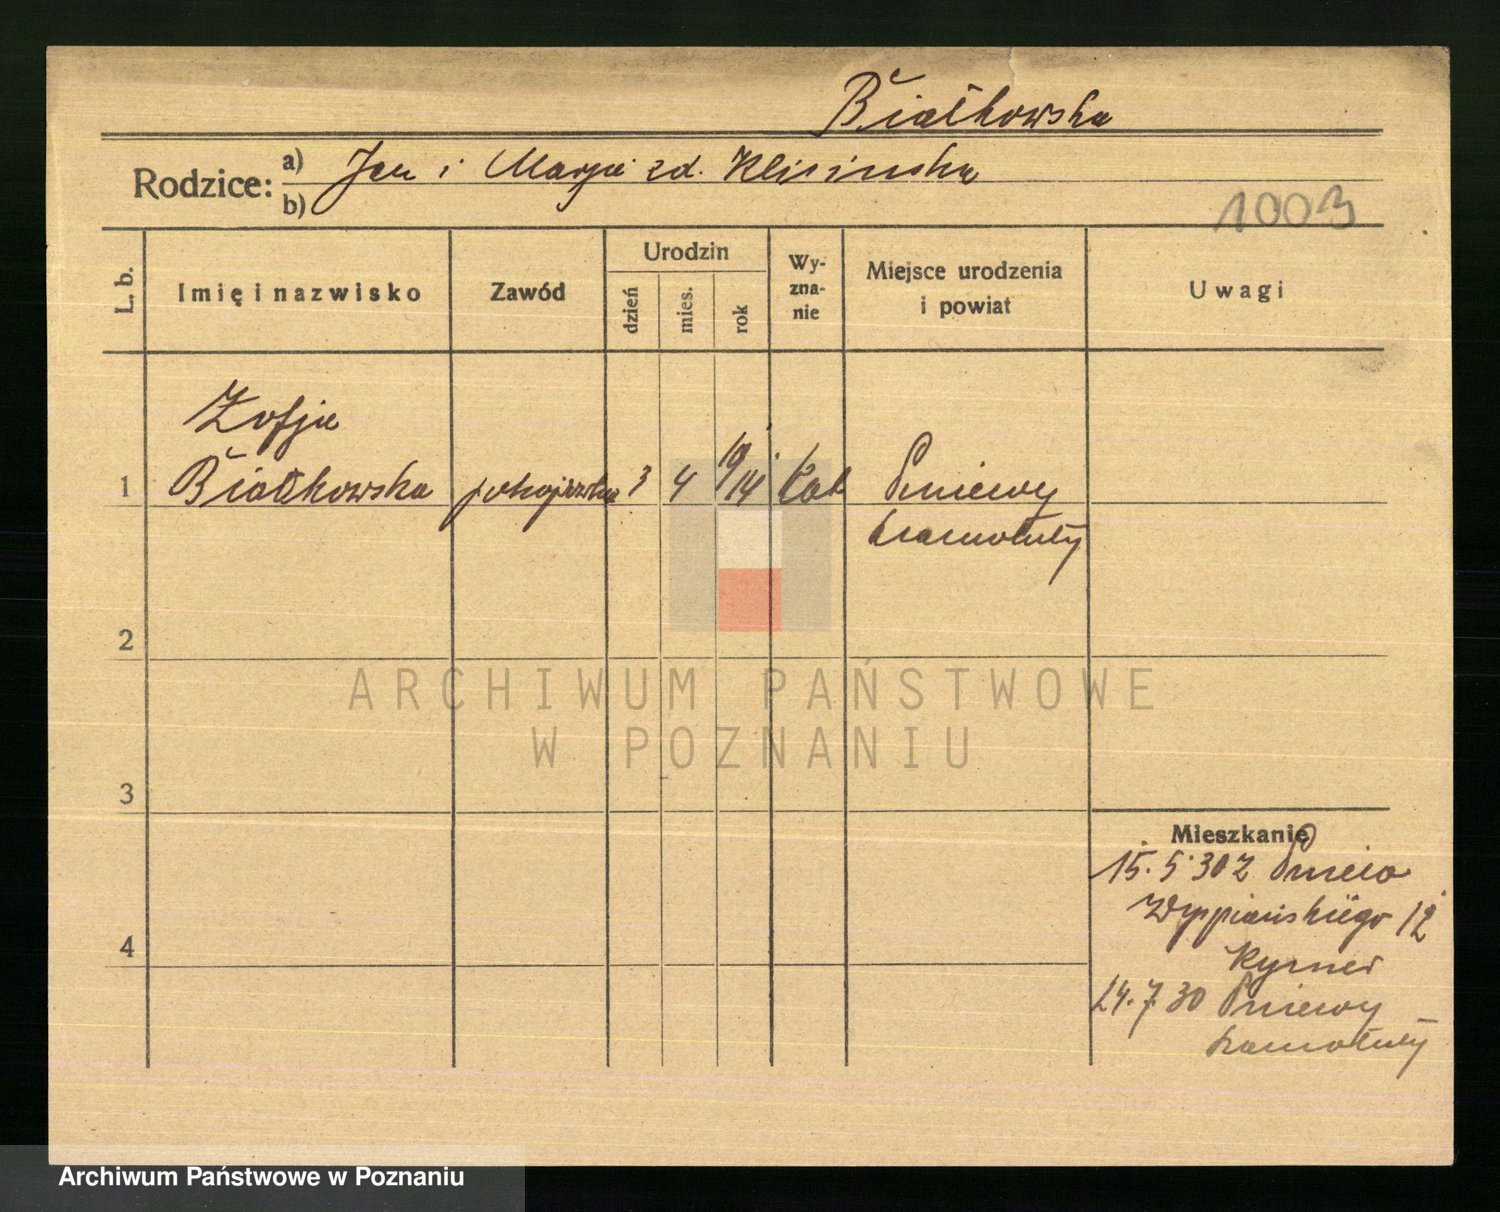 Białkowska
Rodzice: a) Jan i Marja zd. Klisińska
b)
1003
L. b. Imię i nazwisko Zawód Urodzin dzień mies. rok Wyznanie Miejsce urodzenia i powiat Uwagi
Zofja
1 Białkowska pokojówka 3 4 19/14 kat Pniewy
Szamotuły
2
ARCHIWUM PAŃSTWOWE
W POZNANIU
3
Mieszkanie
15.5.30 z Pniew
Wyspiańskiego 12
4
24.7.30 Pniewy
Szamotuły
Archiwum Państwowe w Poznaniu